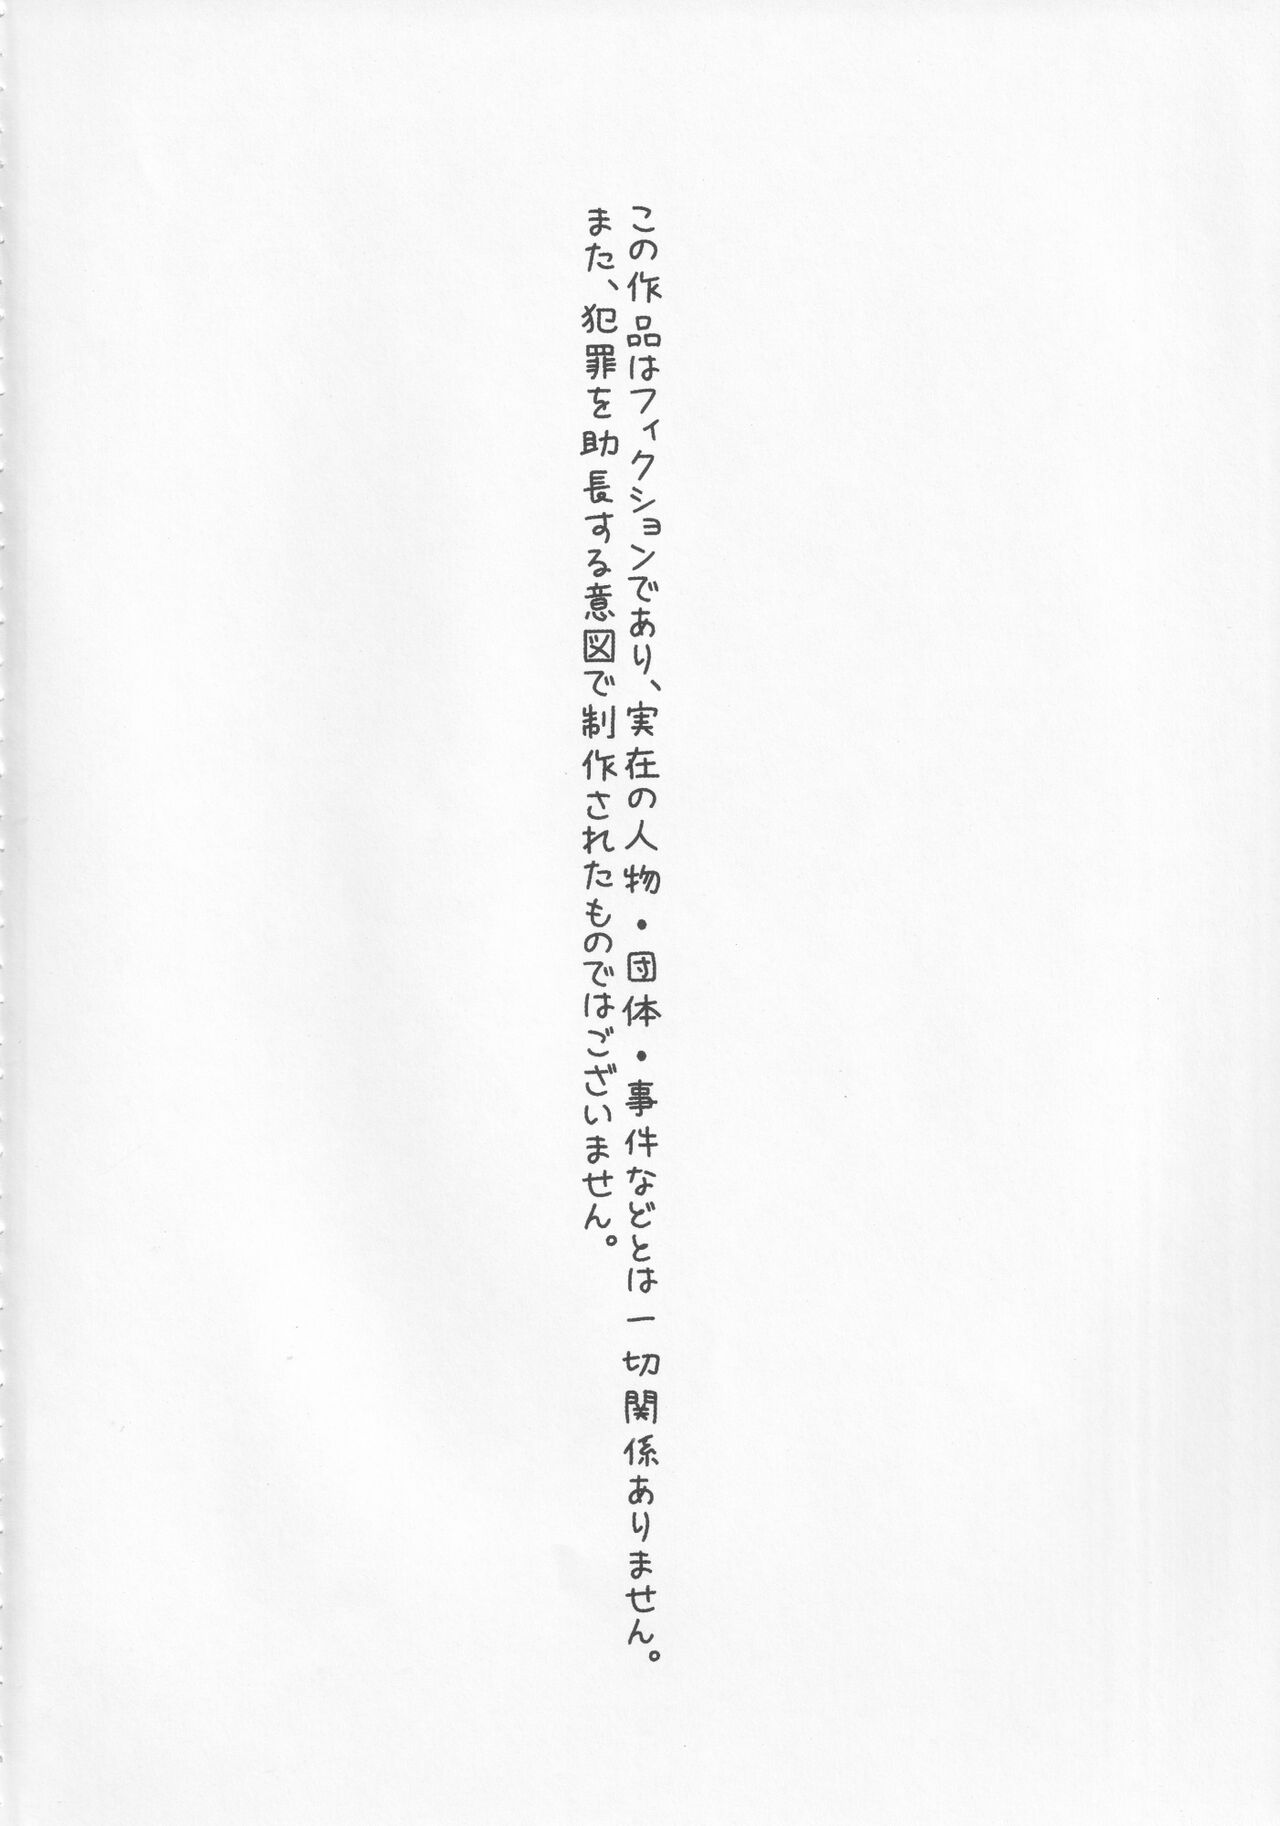 この作品はフィクションであり、実在の人物・団体・事件などとは一切関係ありません。
また、犯罪を助長する意図で制作されたものではございません。